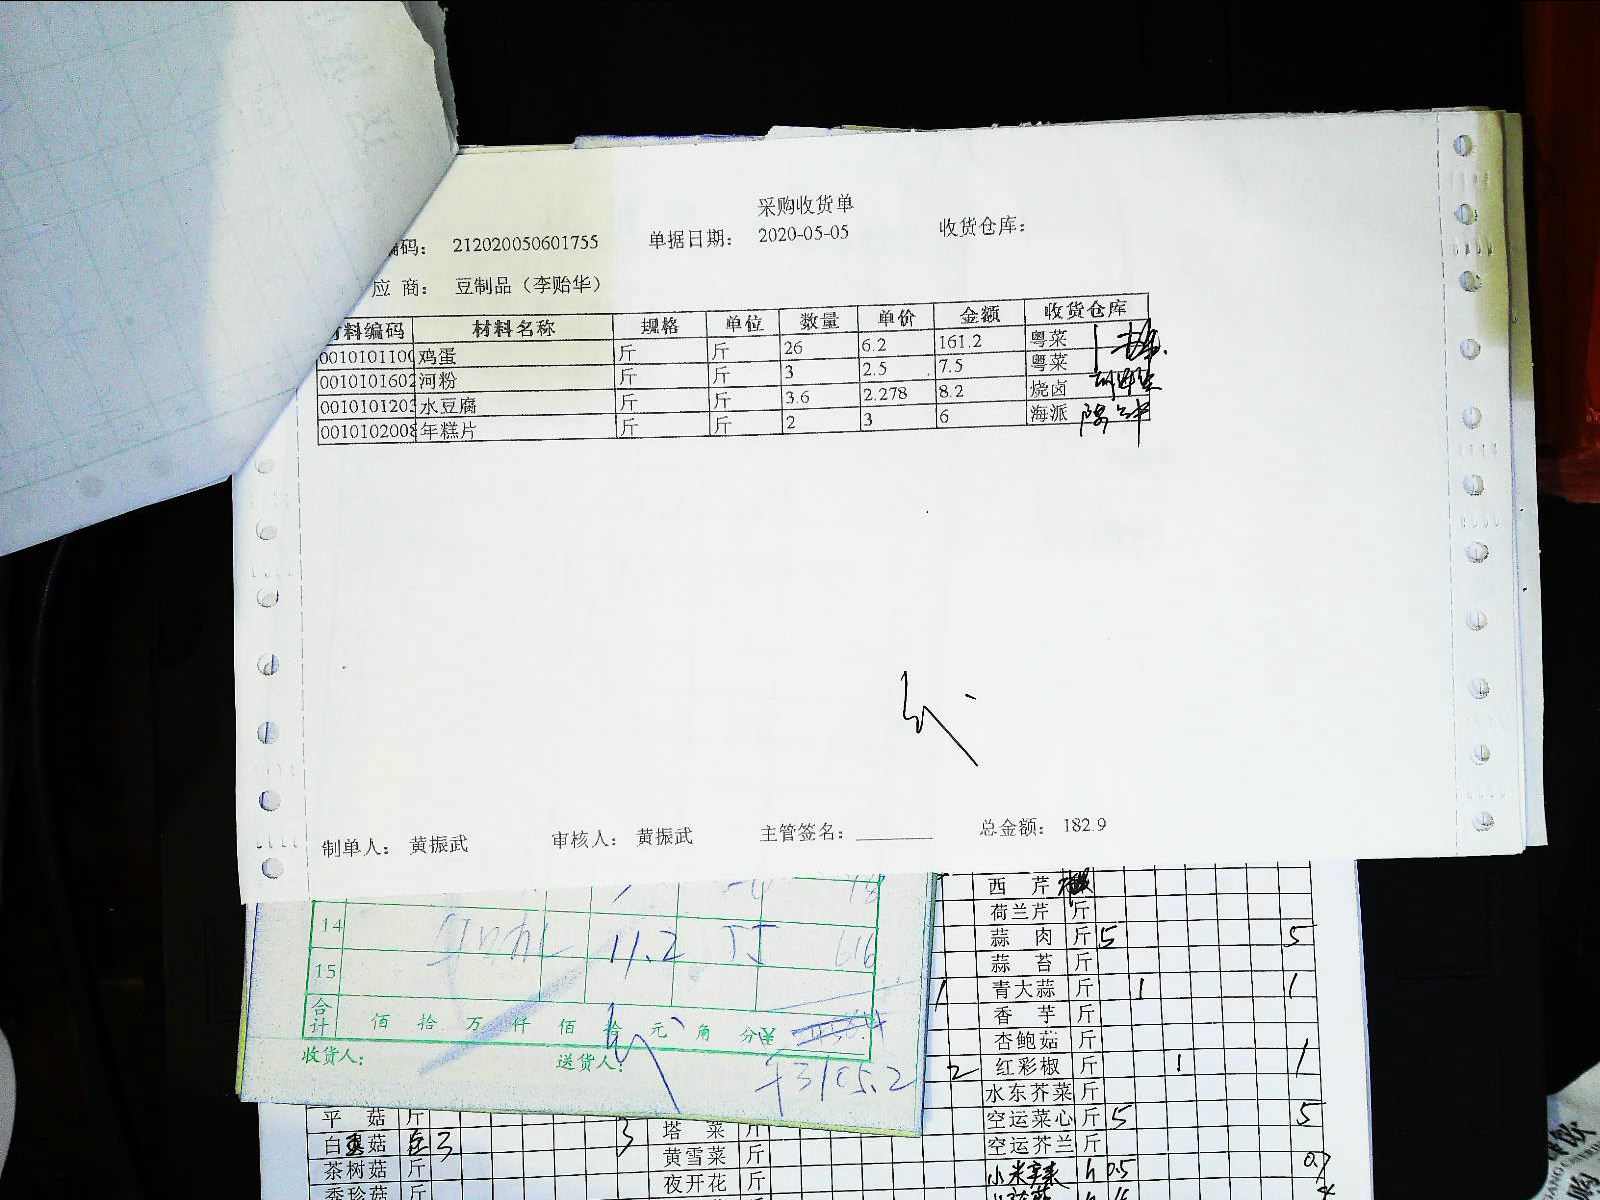 采购收货单
编码： 212020050601755 单据日期： 2020-05-05 收货仓库：
应 商： 豆制品（李贻华）
材料编码 材料名称 规格 单位 数量 单价 金额 收货仓库
0010101100 鸡蛋 斤 斤 26 6.2 161.2 粤菜
0010101602 河粉 斤 斤 3 2.5 7.5 粤菜
0010101203 水豆腐 斤 斤 3.6 2.278 8.2 烧卤
0010102008 年糕片 斤 斤 2 3 6 海派
制单人： 黄振武 审核人： 黄振武 主管签名： 总金额： 182.9
14 11.2 55 616
15
合计 佰 拾 万 仟 佰 拾 元 角 分
收货人： 送货人：
西 芹
荷兰芹 斤
蒜 肉 斤 5 5
蒜 苔 斤
1 青大蒜 斤 1 1
香 芋 斤
杏鲍菇 斤
2 红彩椒 斤 1 1
水东芥菜 斤
空运菜心 斤 5 5
空运芥兰 斤
小米辣 0.5
平 菇 斤
白 菇 3 3
茶树菇 斤
秀珍菇 斤
塔 菜 斤
黄雪菜 斤
夜开花 斤